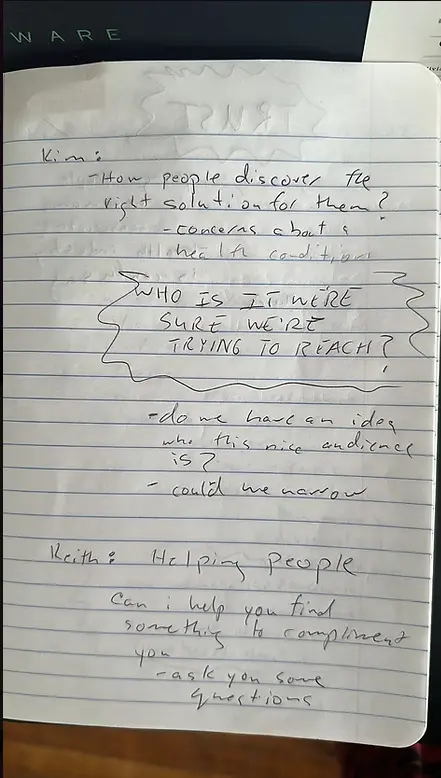 WARE
Kim:
- How people discover the
right solution for them?
- concerns about a
health condition
WHO IS IT WE'RE
SURE WE'RE
TRYING TO REACH?
- do we have an idea
who this nice audience
is?
- could we narrow
Keith: Helping people
Can i help you find
something to compliment
you
- ask you some
questions